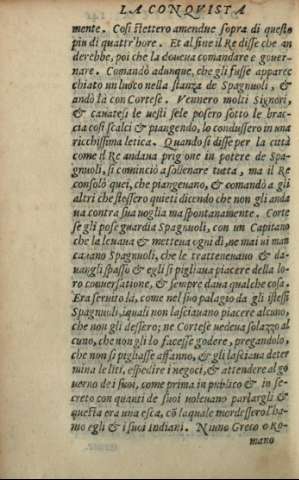 LA CONQVISTA
mente. Cosi stettero amendue sopra di questo
piu di quattr'hore. Et al fine il Re disse che an
derebbe, poi che la doueua comandare e gouer-
nare. Comandò adunque, che gli fusse apparec
chiato un luoco nella stanza de Spagnuoli, &
andò là con Cortese. Vennero molti Signori,
& cauatesi le uesti sele posero sotto le brac-
cia cosi scalci & piangendo, lo condussero in una
ricchissima letica. Quando si disse per la città
come il Re andaua prigione in potere de Spa-
gnuoli, si cominciò a solleuare tutta, ma il Re
consolò quei, che piangeuano, & comandò a gli
altri che stessero quieti dicendo che non gli anda
ua contra sua uoglia ma spontanamente. Corte
se gli pose guardia Spagnuoli, con un Capitano
che la leuaua & metteua ogni dì, ne mai ui man
cauano Spagnuoli, che le tratteneuano & da-
uangli spasso & egli si pigliaua piacere della lo-
ro conuersatione, & sempre daua qualche cosa.
Era seruito là, come nel suo palagio da gli istessi
Spagnuoli, iquali non lasciauano piacere alcuno,
che non gli dessero; ne Cortese uedeua solazzo al
cuno, che non gli lo facesse godere, pregandolo,
che non si pigliasse affanno, & gli lasciaua deter
mina le liti, espedire i negoci, & attendere al go
uerno de i suoi, come prima in publico & in se-
creto con quanti de suoi uoleuano parlargli &
questa era una esca, cō laquale mordessero l'ha-
mo egli & i suoi Indiani. Niuno Greco o Ro-
mano